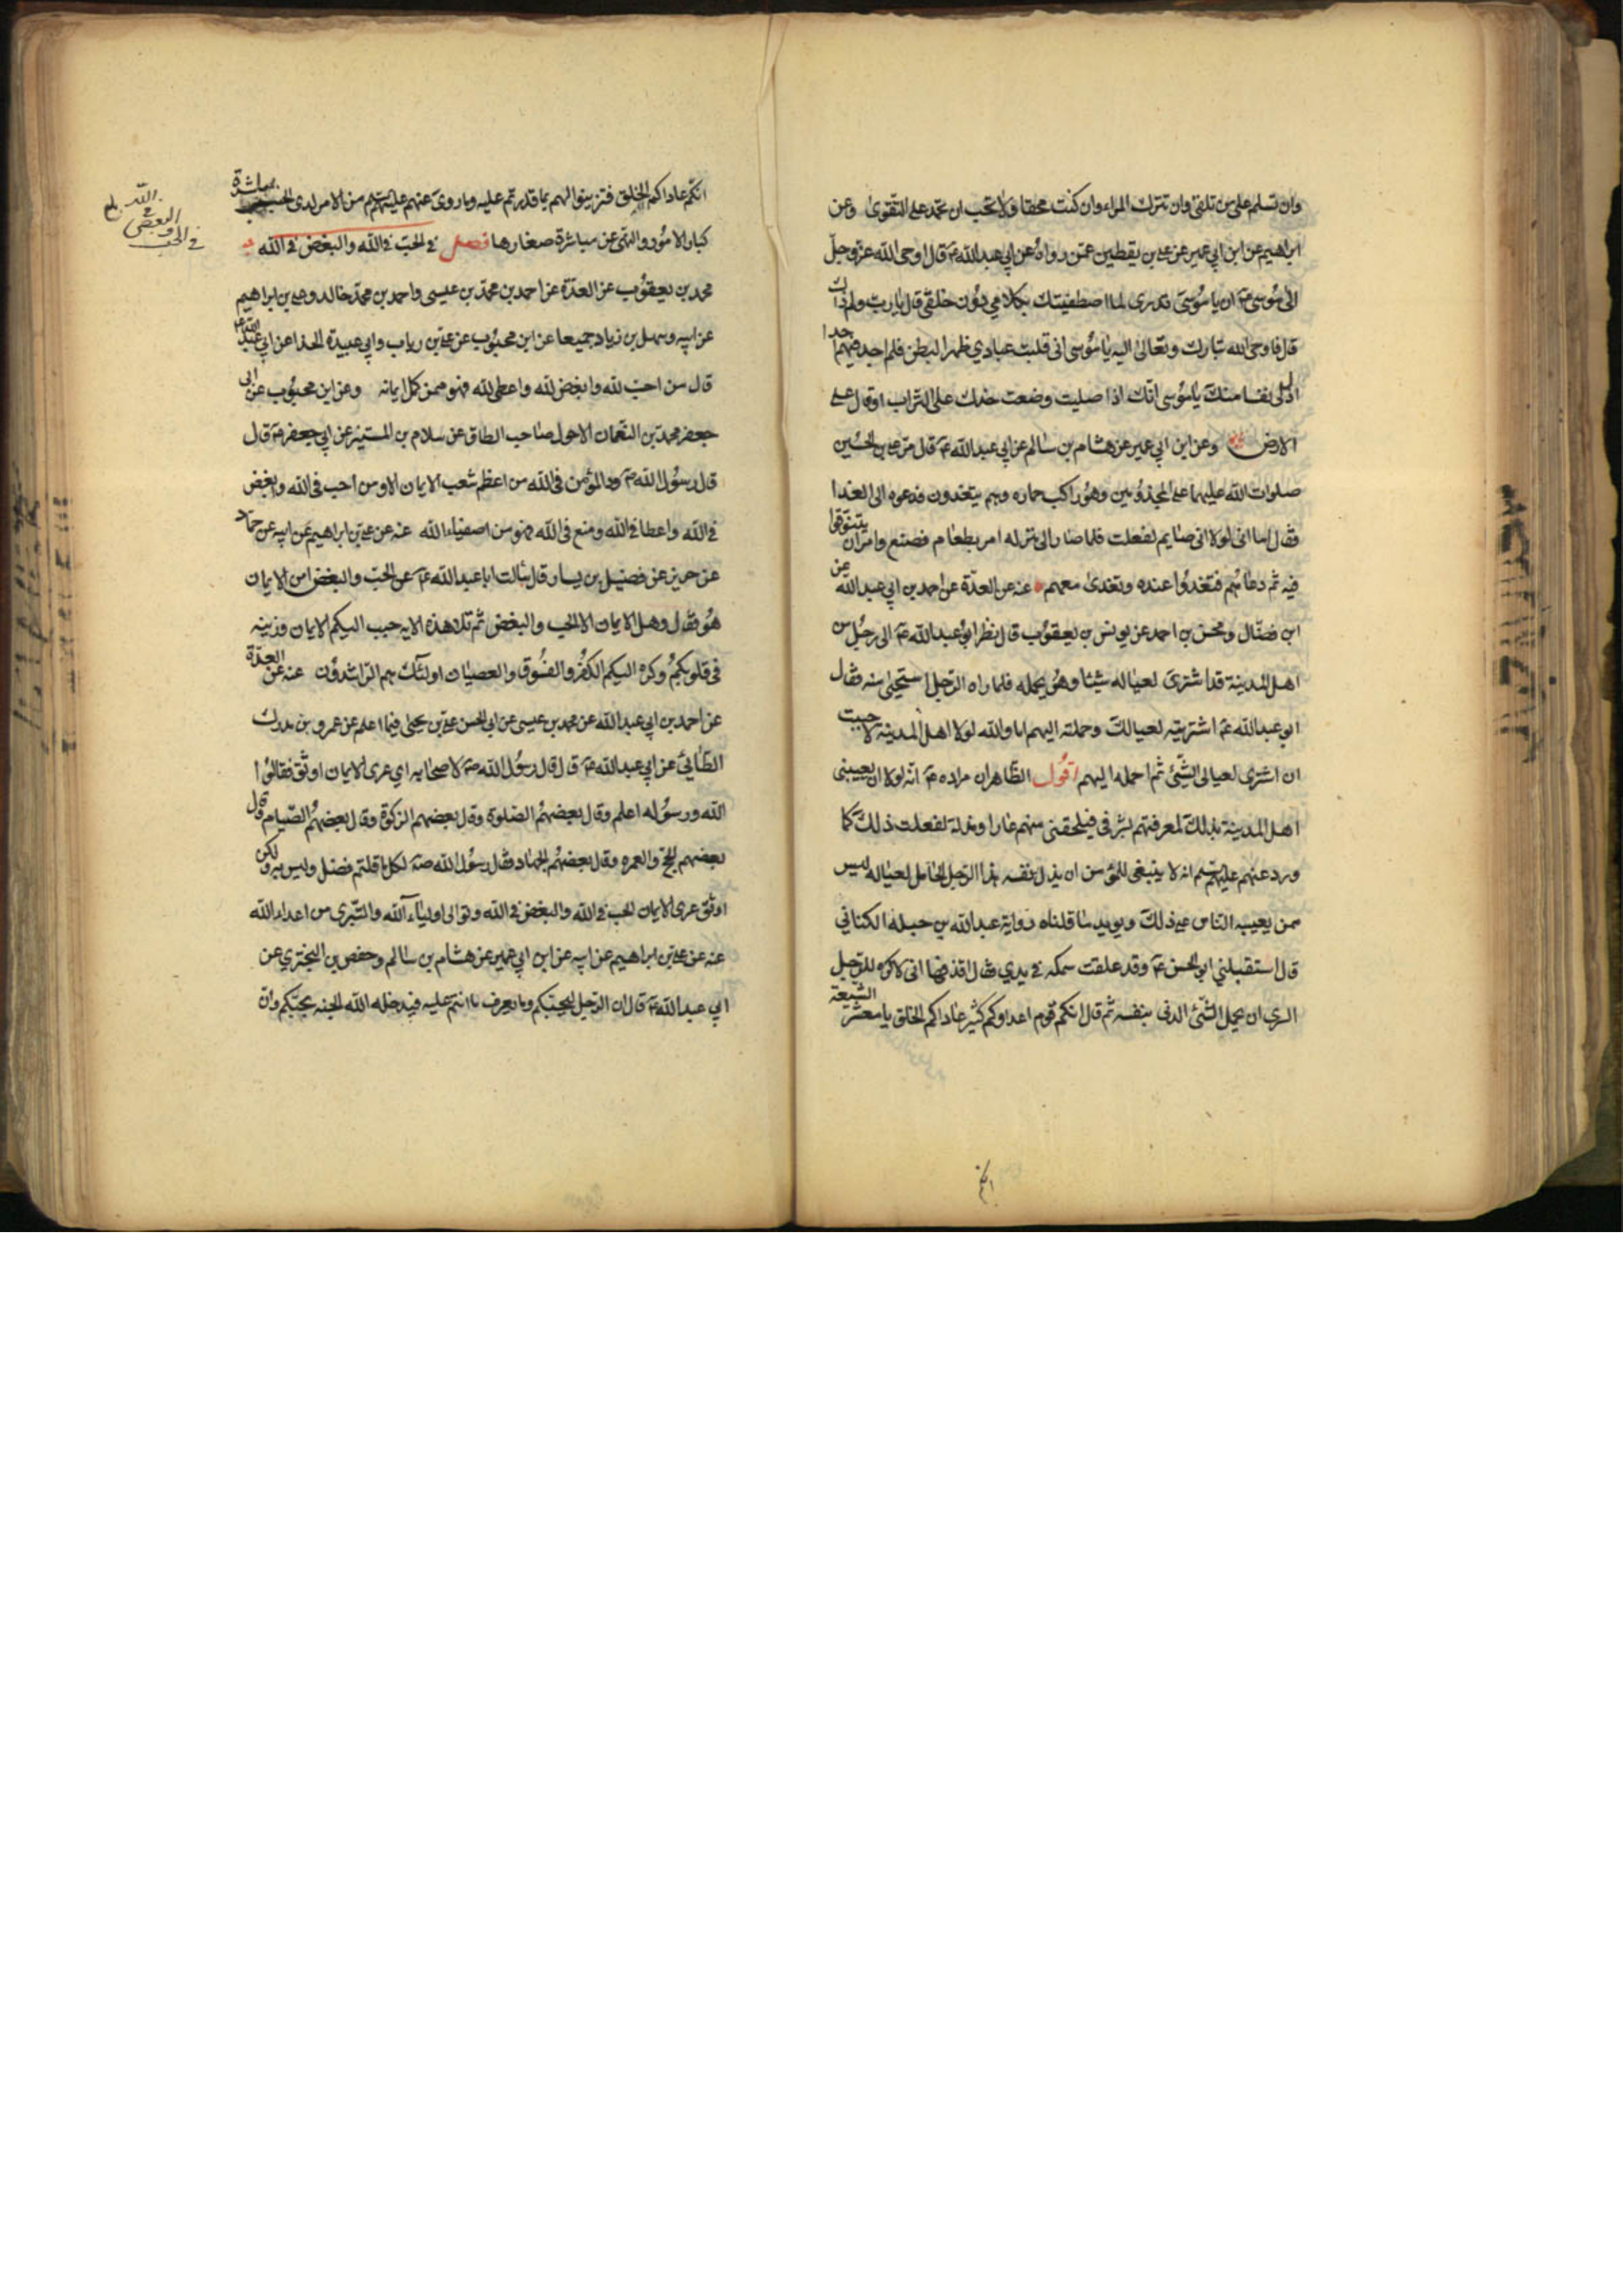 وان تسلم على من تلقى وان تترك المراء وان كنت محقا ولا تحب ان تحمد على التقوى وعن
ابراهيم عن ابن ابي عمير عن علي بن يقطين عمن رواه عن ابي عبد الله ع قال اوحى الله عز وجل
الى موسى ع ان يا موسى تدرى لما اصطفيتك بكلامي دون خلقي قال يا رب ولم ذاك
قال فاوحى الله تبارك وتعالى اليه يا موسى انى قلبت عبادي ظهرا لبطن فلم اجد فيهم احدا
اذل لى نفسا منك يا موسى انك اذا صليت وضعت خدك على التراب او قال على
الارض وعن ابن ابي عمير عن هشام بن سالم عن ابي عبد الله ع قال مر علي بن الحسين
صلوات الله عليهما على المجذومين وهو راكب حماره وهم يتغدون فدعوه الى الغدا
فقال اما انى لولا انى صايم لفعلت فلما صار الى منزله امر بطعام فصنع وامر ان يتنوقوا
فيه ثم دعاهم فتغدوا عنده وتغدى معهم عنه عن العدة عن احمد بن ابي عبد الله عن
ابن فضال ومحسن بن احمد عن يونس بن يعقوب قال نظر ابو عبد الله ع الى رجل من
اهل المدينة قد اشترى لعياله شيئا وهو يحمله فلما راه الرجل استحيى منه فقال
ابو عبد الله ع اشتريته لعيالك وحملته اليهم اما والله لولا اهل المدينة لاحببت
ان اشترى لعيالى الشئ ثم احمله اليهم اقول الظاهر ان مراده ع انه لولا ان يعيبنى
اهل المدينة بذلك لمعرفتهم بشرفى فيلحقنى منهم عارا ومذلة لفعلت ذلك كما
ورد عنهم عليهم السلم انه لا ينبغى للمؤمن ان يذل نفسه هذا الرجل الحامل لعياله ليس
ممن يعيبه الناس على ذلك ويويد ما قلناه رواية عبد الله بن جبله الكناني
قال استقبلني ابو الحسن ع وقد علقت سمكه في يدي فقال اقذفها انى لاكره للرجل
السرى ان يحمل الشئ الدنى بنفسه ثم قال انكم قوم اعداوكم كثير عاداكم الخلق يا معشر الشيعة
انكم عاداكم الخلق فتزينوا لهم بما قدرتم عليه وما روى عنهم عليهم السلم من الامر لدى الحسب بمباشرة
كبار الامور والنهى عن مباشرة صغارها فصل في الحب في الله والبغض في الله
محمد بن يعقوب عن العدة عن احمد بن محمد بن عيسى واحمد بن محمد خالد وعلي بن ابراهيم
عن ابيه وسهل بن زياد جميعا عن ابن محبوب عن علي بن رياب وابي عبيدة الحذا عن ابي عبد الله ع
قال من احب لله وابغض لله واعطى لله فهو ممن كمل ايمانه وعن ابن محبوب عن ابي
جعفر محمد بن النعمان الاحول صاحب الطاق عن سلام بن المستنير عن ابي جعفر ع قال
قال رسول الله ص ود المؤمن في الله من اعظم شعب الايمان الا ومن احب في الله وابغض
في الله واعطا في الله ومنع في الله فهو من اصفياء الله عنه عن علي بن ابراهيم عن ابيه عن حماد
عن حريز عن فضيل بن يسار قال سالت ابا عبد الله ع عن الحب والبغض امن الايمان
هو فقال وهل الايمان الا الحب والبغض ثم تلا هذه الايه حبب اليكم الايمان وزينه
في قلوبكم وكره اليكم الكفر والفسوق والعصيان اولئك هم الراشدون عنه عن العدة
عن احمد بن ابي عبد الله عن محمد بن عيسى عن ابي الحسن علي بن يحيى فيما اعلم عن عمرو بن مدرك
الطائي عن ابي عبد الله ع قال قال رسول الله ص لاصحابه اي عرى الايمان اوثق فقالوا
الله ورسوله اعلم وقال بعضهم الصلوة وقال بعضهم الزكوة وقال بعضهم الصيام وقال
بعضهم الحج والعمره وقال بعضهم الجهاد فقال رسول الله ص لكل ما قلتم فضل وليس به ولكن
اوثق عرى الايمان الحب في الله والبغض في الله وتوالى اولياء الله والتبرى من اعداء الله
عنه عن علي بن ابراهيم عن ابيه عن ابن ابي عمير عن هشام بن سالم وحفص بن البختري عن
ابي عبد الله ع قال ان الرجل ليحبكم وما يعرف ما انتم عليه فيدخله الله الجنه بحبكم وان
في الحب والبغض في الله
انكم